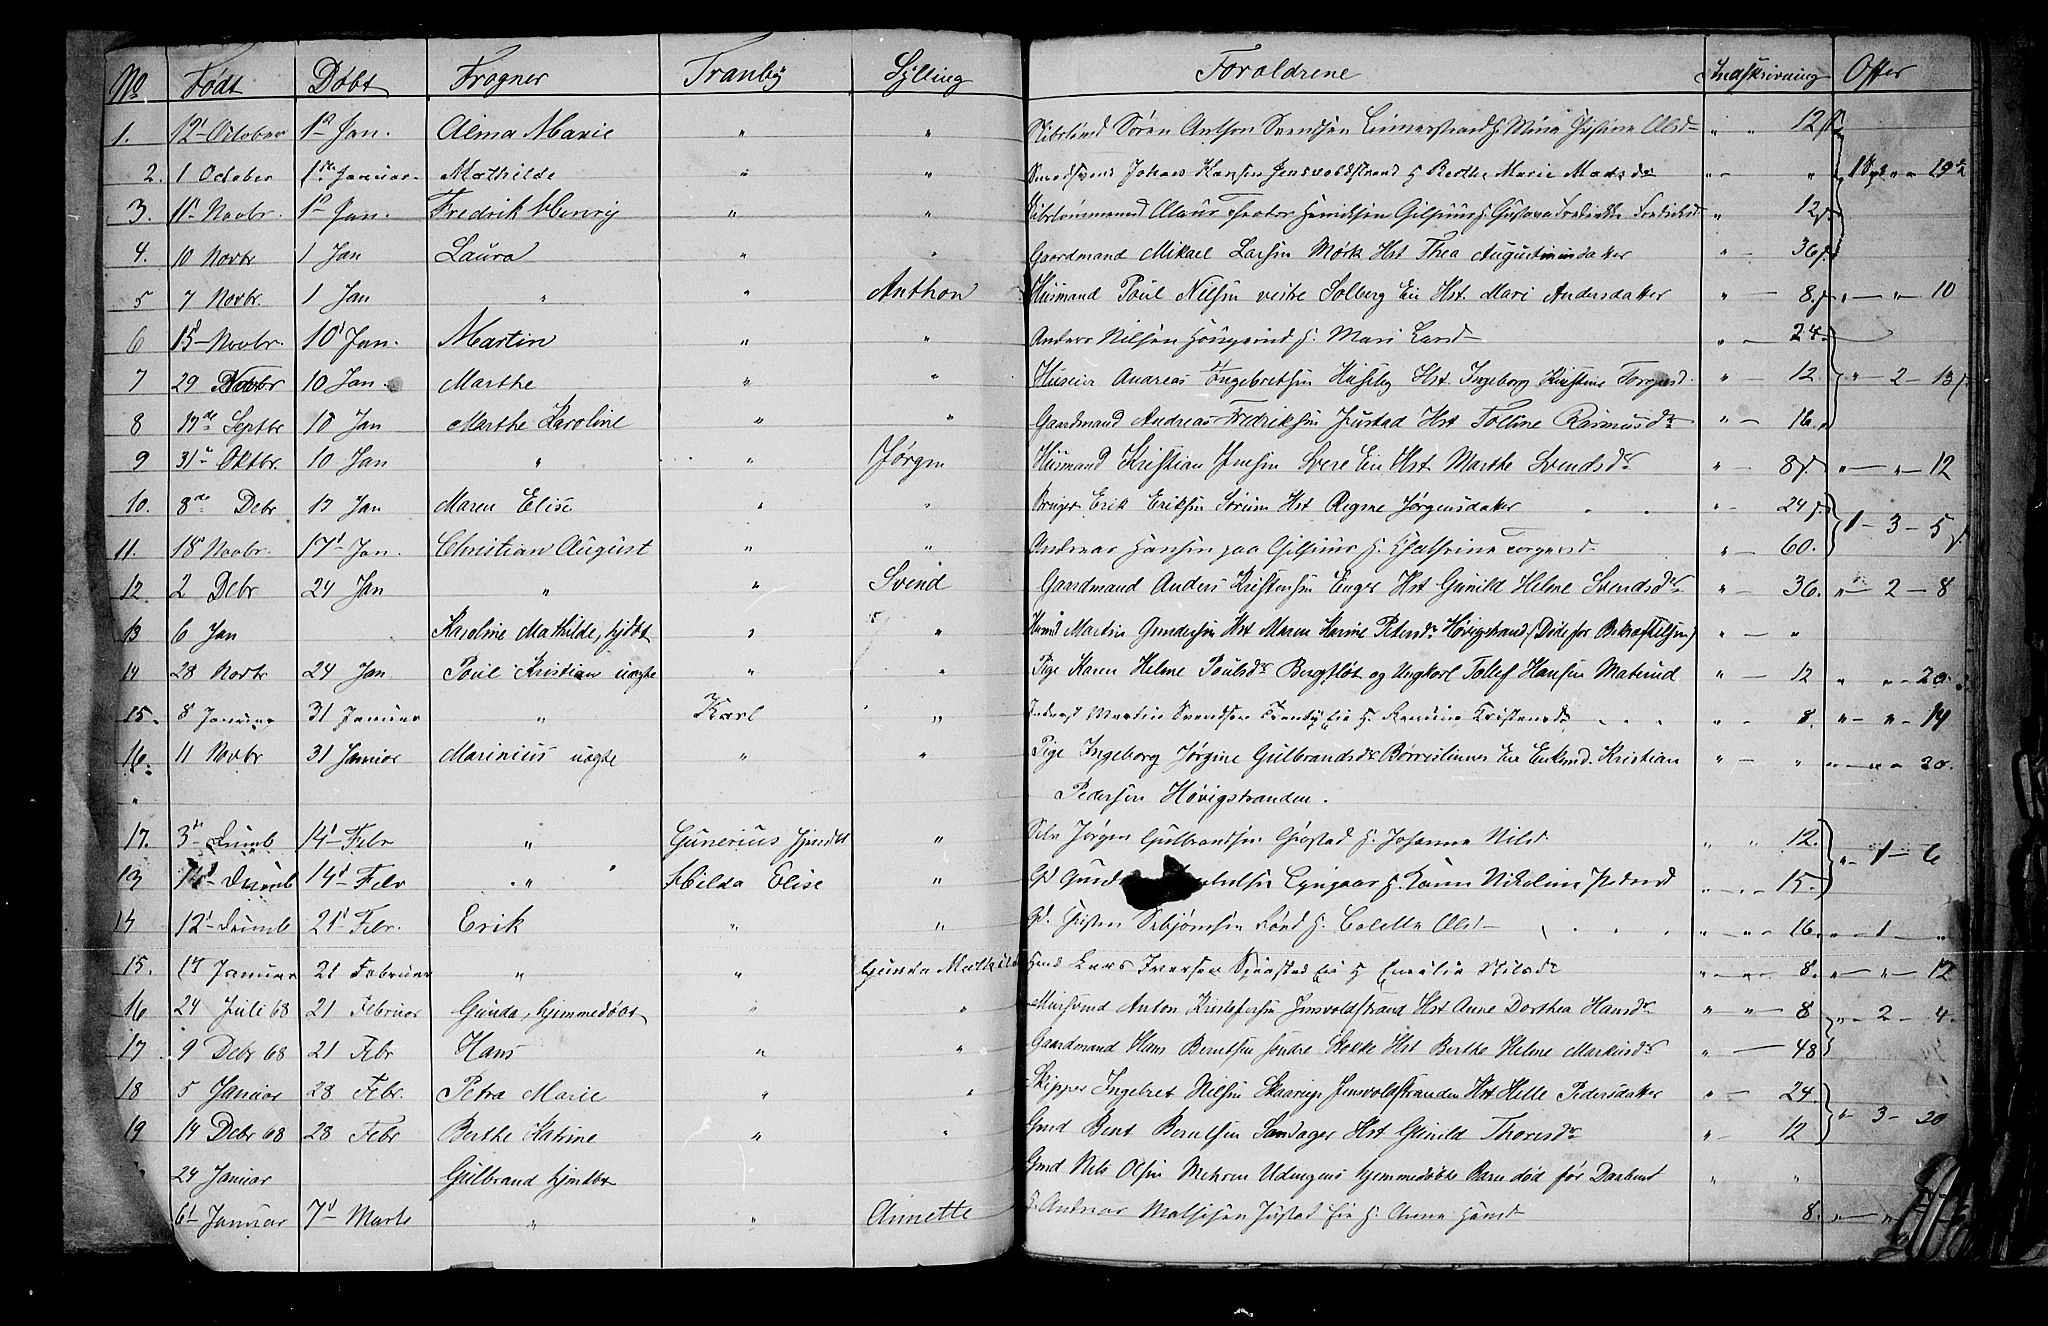 No Født Døbt Frogner Tranby Sylling Foraldrene Indskrivning Offer
1. 12t October 1st Jan. Alma Marie " " Søren Anthon Svendsen H. Mina Olsd " " 12
2. 1 October 1ste Januar. Mathilde " " Johan Hansen Jensvoldstrand H Berthe Marie Madsdr " " "
3. 11t Novbr. 1st Jan. Fredrik Henry " " Henriksen Gilhuus H. Gustava " 12
4. 10 Novbr 1 Jan Laura " " Gaardmand Mikael Larsen Mørk Hst Thea Augustinusdatter " - 36
5 7 Novbr. 1 Jan " " Anthon Husmand Poul Nilsen vestre Solberg Eie Hst. Mari Andersdatter " - 8 " - " - 10
6 15 Novbr. 10t Jan. Martin " " Anders Nilsen H. Mari Larsd " - 24.
7 29 Novbr 10 Jan. Marthe " " Huseier Andreas Engebretsen Huseby Hst. Ingeborg Kirstine Torgersd. " - 12. " - 2 - 13
8 17de Septbr 10 Jan Marthe Karoline " " Gaardmand Andreas Fredriksen Justad Hst Tolline Rasmusdr " - 16.
9 31te Oktbr. 10 Jan " " Jørgen Husmand Kristian Jensen Svere Eie Hst Marthe Svendsdr " - 8 " - " - 12
10. 8de Debr 17 Jan Maren Elise " " Bruger Erik Eriksen Sørum Hst Regine Jørgensdatter " - 24
11. 18 Novbr. 17t Jan. Christian August " " Andreas Hansen paa Gilhuus H. Cathrine Torgersd " - 60. 1 - 3 - 5
12 2 Debr 24 Jan " " Svend Gaardmand Anders Kristensen Enger Hst Gunild Helene Svendsdr " - 36. " - 2 - 8
13 6 Jan Karoline Mathilde, hjdbt " " Martin Gundersen Hst Maren Karine Petersdr Høvigstrand (Døde før Bekræftelsen) " - "
14 28 Novbr 24 Jan Poul Kristian uægte " " Pige Karen Helene Poulsdr Bergfløt og Ungkarl Tollef Hansen Materud " - 12 " " - 20.
15. 8 Januar 31 Januar " Karl " Martin Svendsen Tranby Eie H. Kristensdr " - 8. " - " - 14
16. 11 Novbr 31 Januar Marinius uægte " " Pige Ingeborg Jørgine Gulbrandsdr Eie Enkemd. Kristian " - " " - " - 20.
" Pedersen Høvigstranden.
17. 3de 14t Febr " Gunerius hjmdbt " Jørgen Gulbrandsen H. Johanne Nilsd " " 12.
13 14t Febr " Hilda Elise " H. Karen Nikoline Pedersd " - 15. " - 1 - 6
14 12t 21t Febr. Erik " " H. Colette Olsd " " - 16. " - 1 - "
15. 17 Januar 21 Februar " " Gunda Mathilde Lars Iversen Eie H Emilie Nilsdr " - " - 8. " - " - 12
16 24 Juli 68 21 Februar Gunda, hjemmedøbt " " Anton Kristofersen Jensvoldstrand Hst Anne Dorthea Hansdr " " - 8 " - 2 - 4.
17 9 Debr 68 21 Febr Hans " " Gaardmand Hans Berntsen søndre Hst Berthe Helene Markusdr " - 48
18 5 Januar 28 Febr. Petra Marie " " Skipper Ingebret Nilsen Jensvoldstranden Hst Helle Pedersdatter " - 24.
19 14 Debr 68 28 Febr Berthe Katrine " " Gmd Bent Berntsen Sandager Hst Gunild Thoresdr " - 12 " 3 - 20
24 Januar Gulbrand hjmdbt Gmd Nils Olsen Mehren hjemmedøbte Barn død før Daaben " "
6t Januar 7t Marts " " Annette Andreas Mathisen Justad Eie H. Anna Hansd 8. " - "